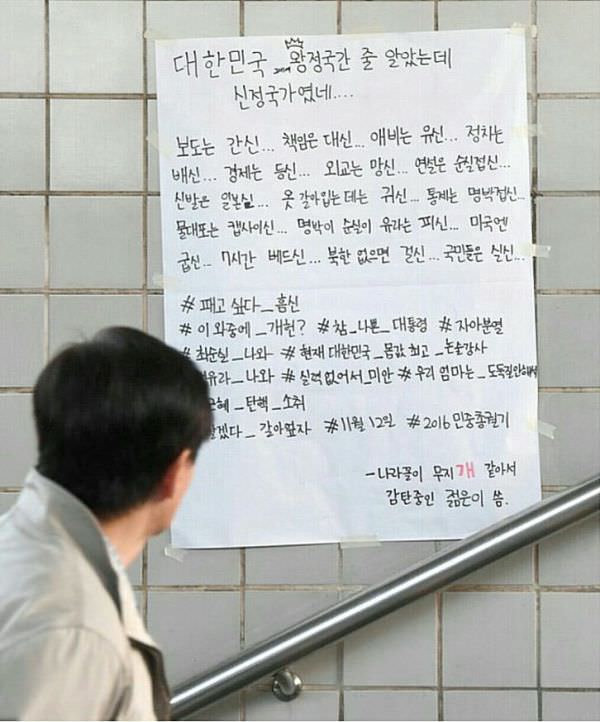 대한민국 왕정국간 줄 알았는데
신정국가였네....
보도는 간신... 책임은 대신... 애비는 유신... 정치는
배신... 경제는 등신... 외교는 망신... 연설은 순실접신...
신발은 일본실... 옷 갈아입는데는 귀신... 통제는 명박접신...
물대포는 캡사이신... 명박이 순실이 유라는 피신... 미국엔
굽신... 7시간 베드신... 북한 없으면 걸신... 국민들은 실신...
# 패고 싶다_흠신
# 이 와중에_개헌? # 참_나쁜_대통령 # 자아분열
# 최순실_나와 # 현재 대한민국_몸값 최고_논손강사
유라_나와 # 실력 없어서_미안 # 우리 엄마는_도둑질안해서
근혜_탄핵_소취
갈겠다_갈아엎자 #11월 12일 #2016 민중총궐기
-나라꼴이 무지개 같아서
감탄중인 젊은이 씀.